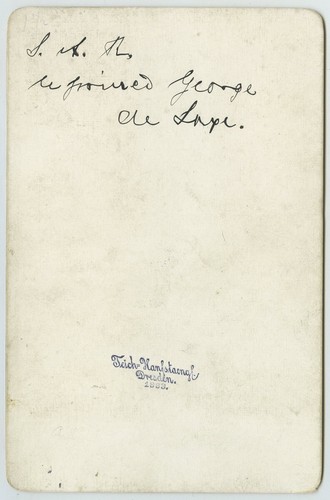 S. A. R.
le prince George
de Saxe.
Teich-Hanfstaengl.
Dresden.
1883.